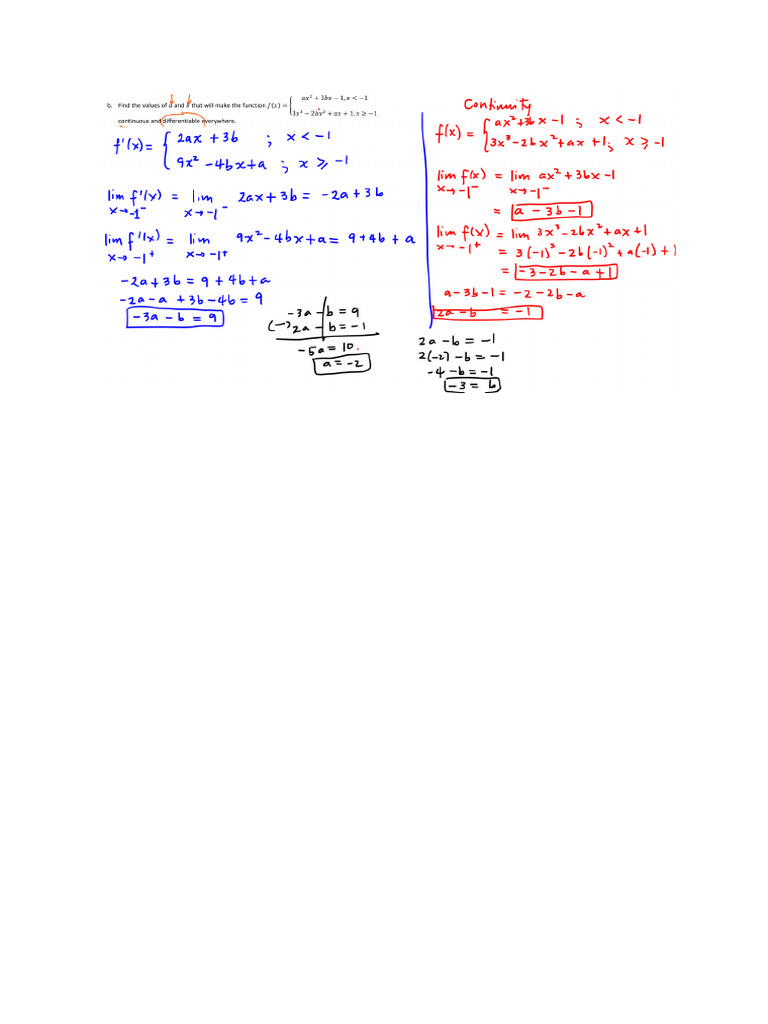 b. Find the values of a and b that will make the function f(x) = { ax² + 3bx − 1, x < −1
3x³ − 2bx² + ax + 1, x ≥ −1
continuous and differentiable everywhere.
f'(x) = { 2ax + 3b ; x < −1
9x² − 4bx + a ; x ≥ −1
lim f'(x) = lim 2ax + 3b = −2a + 3b
x → −1⁻ x → −1⁻
lim f'(x) = lim 9x² − 4bx + a = 9 + 4b + a
x → −1⁺ x → −1⁺
−2a + 3b = 9 + 4b + a
−2a − a + 3b − 4b = 9
−3a − b = 9
−3a − b = 9
(−) 2a − b = −1
−5a = 10
a = −2
Continuity
f(x) = { ax² + 3b x − 1 ; x < −1
3x³ − 2bx² + ax + 1; x ≥ −1
lim f(x) = lim ax² + 3bx − 1
x → −1⁻ x → −1⁻
= a − 3b − 1
lim f(x) = lim 3x³ − 2bx² + ax + 1
x → −1⁺
= 3(−1)³ − 2b(−1)² + a(−1) + 1
= −3 − 2b − a + 1
a − 3b − 1 = −2 − 2b − a
2a − b = −1
2a − b = −1
2(−2) − b = −1
−4 − b = −1
−3 = b